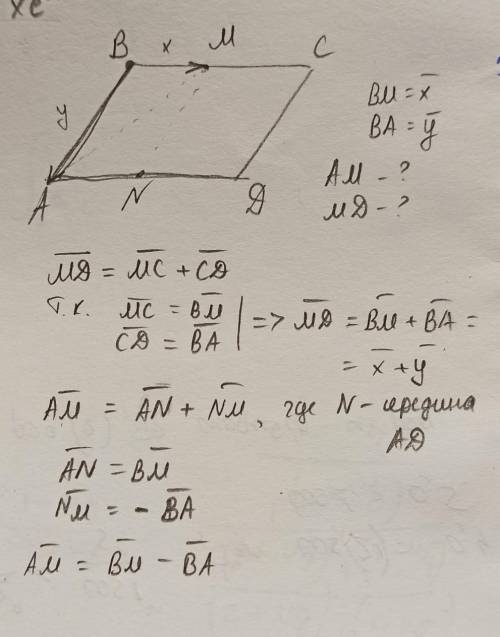 хе
B x M C
y
A N D
BM = x̅
BA = y̅
AM - ?
MD - ?
M̅D̅ = M̅C̅ + C̅D̅
т.к. M̅C̅ = B̅M̅
C̅D̅ = B̅A̅ | => M̅D̅ = B̅M̅ + B̅A̅ =
= x̅ + y̅
A̅M̅ = A̅N̅ + N̅M̅, где N - середина
AD
A̅N̅ = B̅M̅
N̅M̅ = - B̅A̅
A̅M̅ = B̅M̅ - B̅A̅